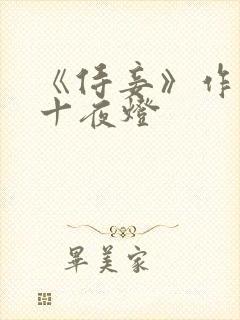 《侍妾》作
十夜燈
畢美家